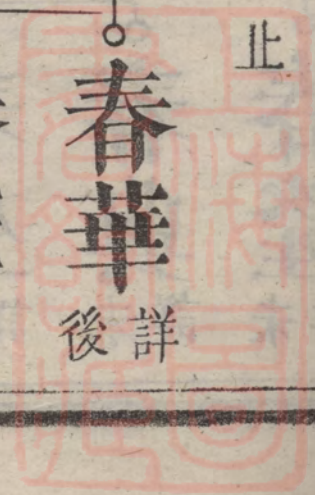 止
春華
詳
後